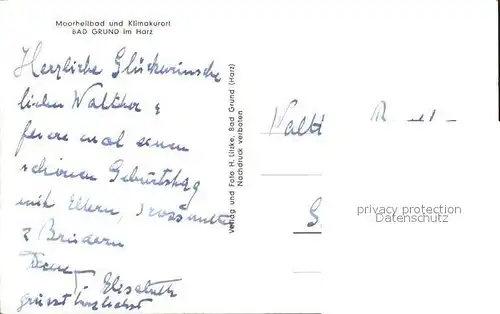 Moorheilbad und Klimakurort
BAD GRUND im Harz
Herzliche Glückwünsche
lieber Walther &
feiere noch einen
schönen Geburtstag
mit Eltern, Grossmutter
2 Brüdern
Elisabeth
grüsst herzlichst
Verlag und Foto H. Litzke, Bad Grund (Harz)
Nachdruck verboten
privacy protection
Datenschutz